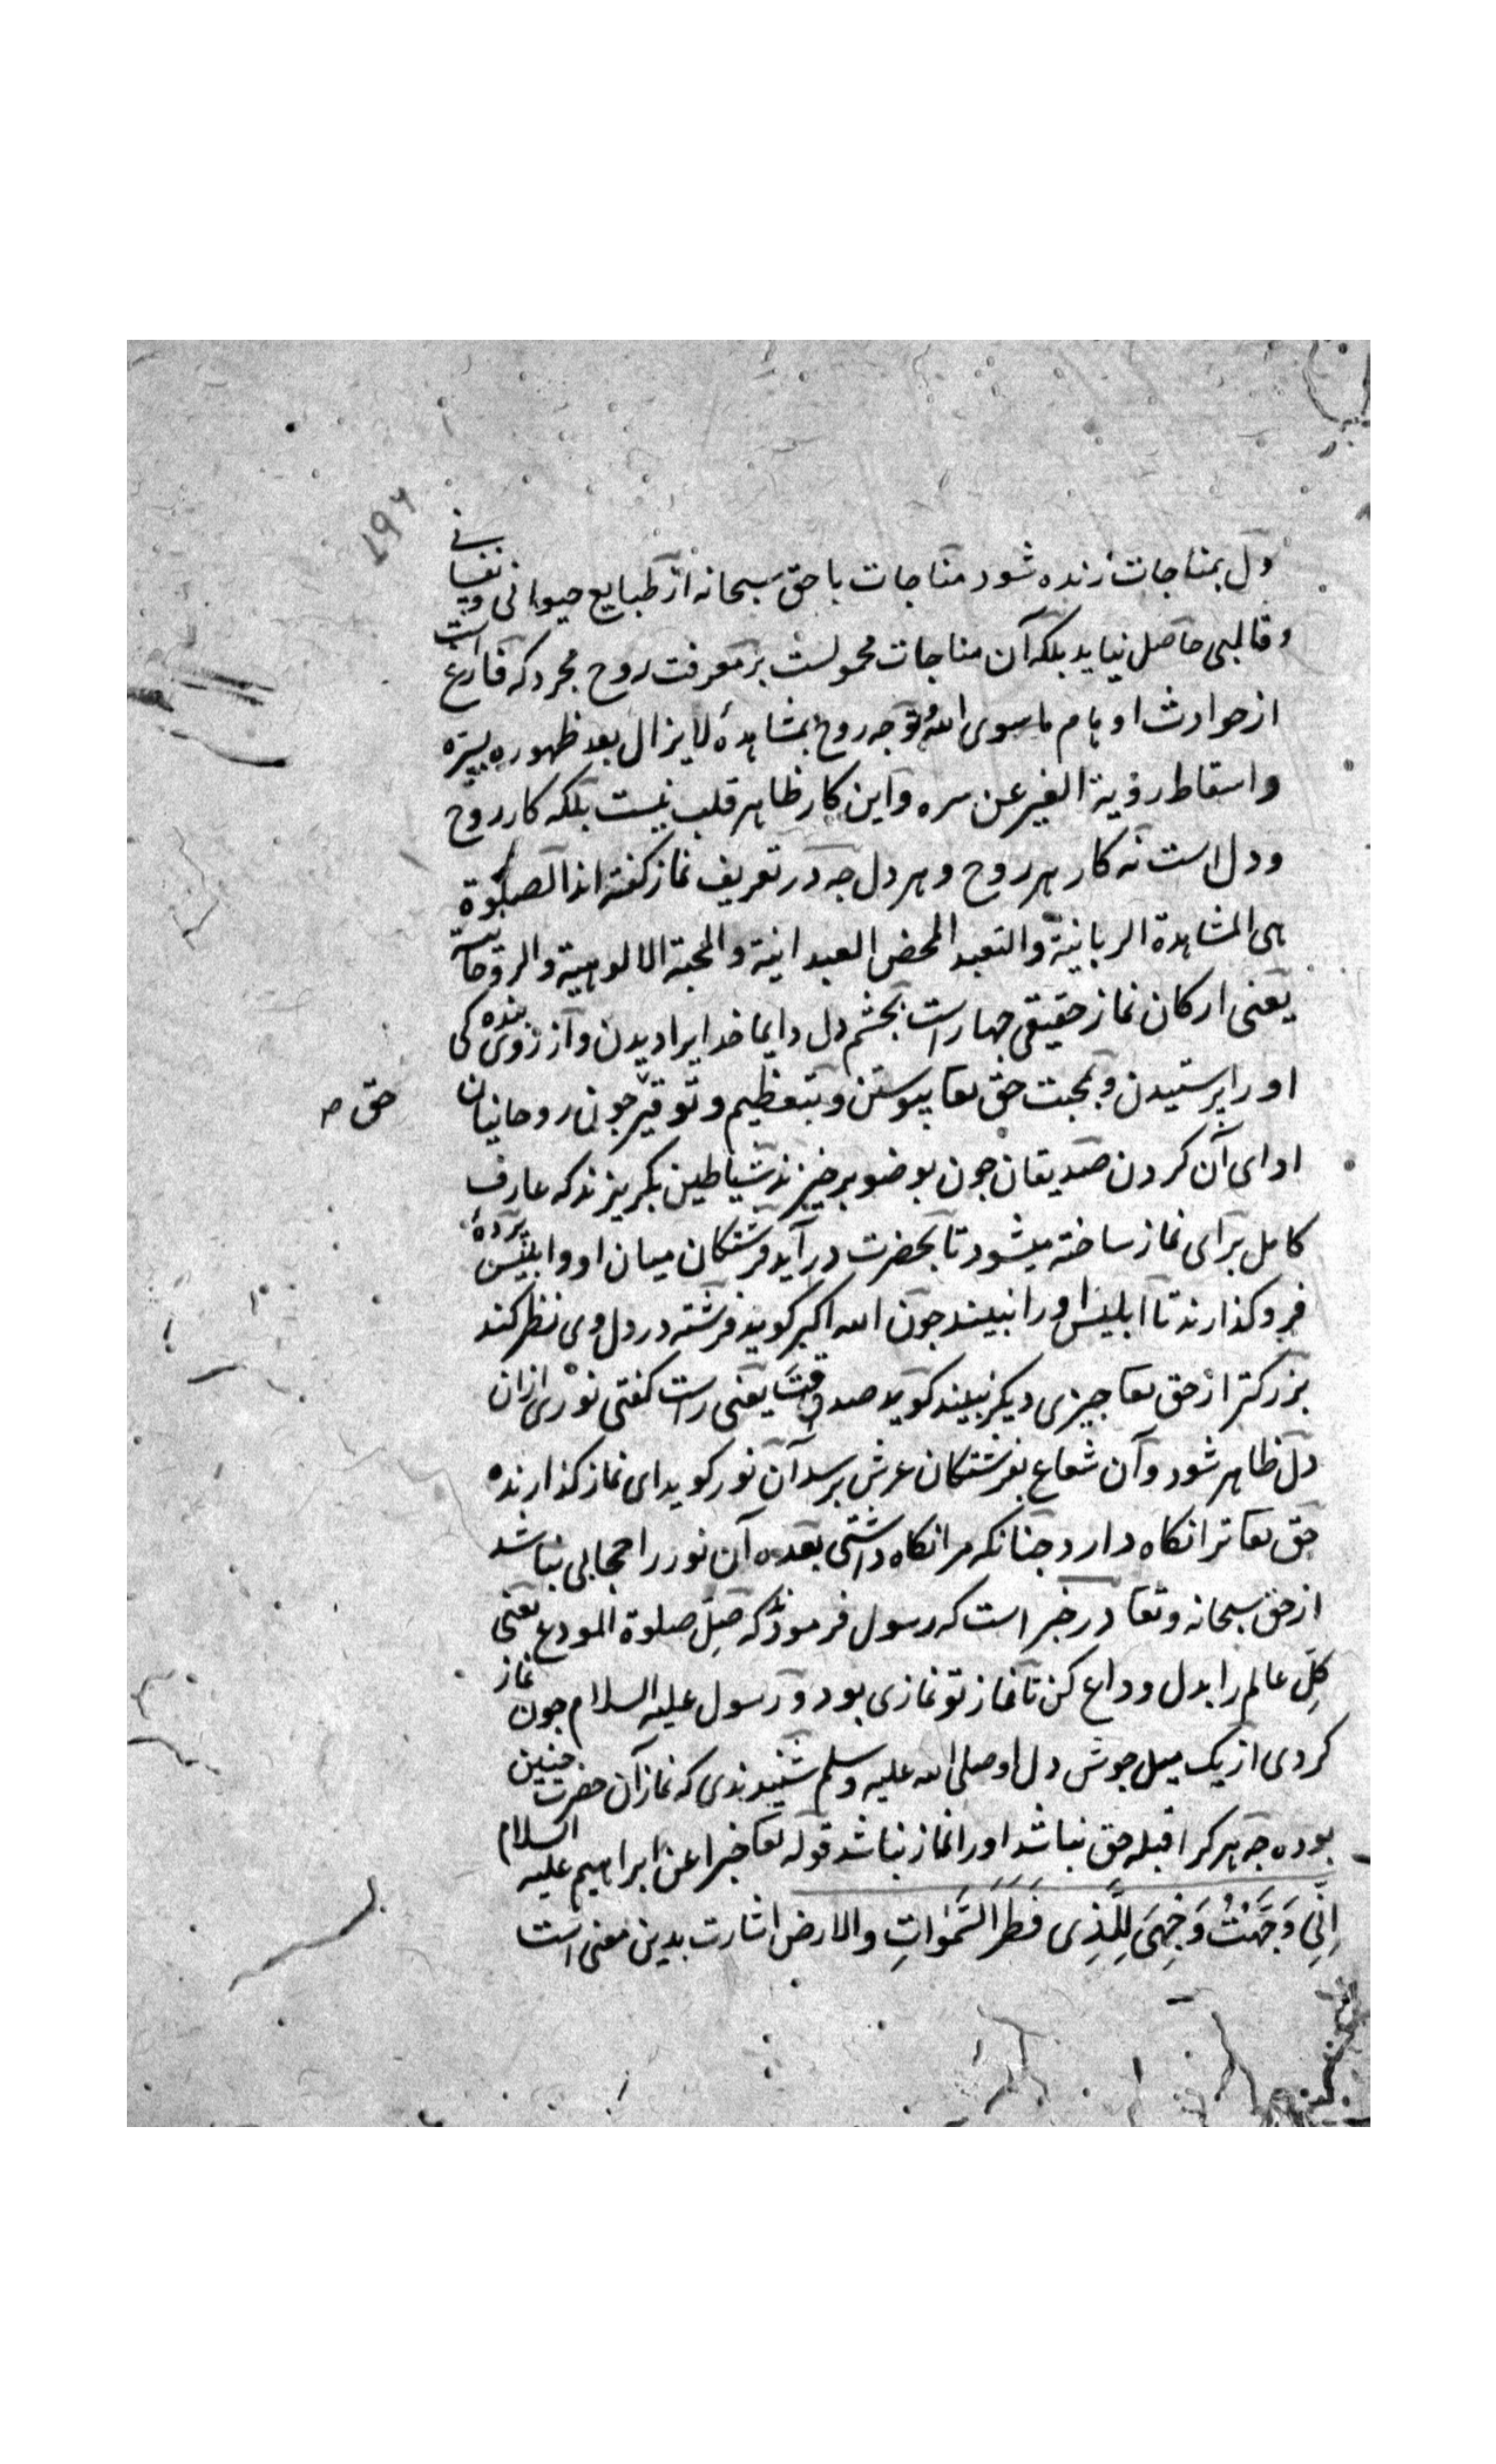 ۲۹۲
دل بمناجات زنده شود مناجات با حق سبحانه از طبایع حیوانی و نفسانی
و قالبی حاصل نیاید بلکه آن مناجات محمولست بر معرفت روح مجرد که فارغ است
از حوادث اوهام ماسوی الله توجه روح بمشاهدهٔ لایزال بعد ظهوره بسره
و اسقاط رؤیة الغیر عن سره و این کار ظاهر قلب نیست بلکه کار روح
و دل است نه کار هر روح و هر دل چه در تعریف نماز گفته‌اند الصلوة
هی المشاهدة الربانیة و التعبد المحض العبدانیة و المحبة الالوهیة و الروحانیة
یعنی ارکان نماز حقیقی چهار است بچشم دل دایما خدایرا دیدن و از روی بندگی
او را پرستیدن و بمحبت حق تعا پیوستن و بتعظیم و توقیر چون روحانیان
حق
ادای آن کردن صدیقان چون بوضو برخیزند شیاطین بگریزند که عارف
کامل برای نماز ساخته میشود تا بحضرت در آید فرشتگان میان او و ابلیس پردهٔ
فرو گذارند تا ابلیس او را نبیند چون الله اکبر گوید فرشته در دل وی نظر کند
بزرگتر از حق تعا چیزی دیگر نبیند گوید صدقت یعنی راست گفتی نوری ازان
دل ظاهر شود و آن شعاع بفرشتگان عرش برسد آن نور گوید ای نماز گذارنده
حق تعا ترا نگاه دارد چنانکه مرا نگاه داشتی بعده آن نور را حجابی نباشد
از حق سبحانه و تعا در خبر است که رسول فرموده که صل صلوة المودع یعنی
کل عالم را بدل وداع کن تا نماز تو نمازی بود و رسول علیه السلام چون نماز
کردی از یک میل جوش دل او صلی الله علیه و سلم شنیدندی که نماز آن حضرت چنین
بوده چه هر کرا قبله حق نباشد او را نماز نباشد قوله تعا خبرا عن ابراهیم علیه السلام
اِنّی وَجَّهْتُ وَجْهِیَ لِلَّذِی فَطَرَ السَّمٰوَاتِ والارض اشارت بدین معنی است